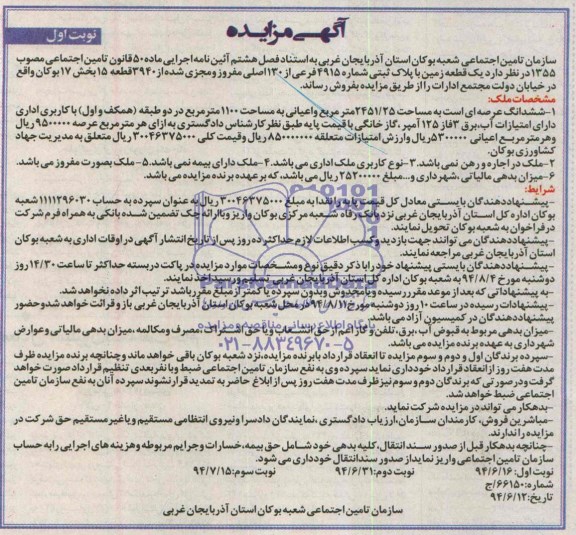 آگهی مزایده
نوبت اول
سازمان تامین اجتماعی شعبه بوکان استان آذربایجان غربی به استناد فصل هشتم آئین نامه اجرایی ماده ۵۰ قانون تامین اجتماعی مصوب
۱۳۵۵ در نظر دارد یک قطعه زمین با پلاک ثبتی شماره ۴۹۱۵ فرعی از ۱۳۰ اصلی مفروز و مجزی شده از ۳۹۴۰ قطعه ۱۵ بخش ۱۷ بوکان واقع
در خیابان دولت مجتمع ادارات را از طریق مزایده بفروش رساند.
مشخصات ملک:
۱-ششدانگ عرصه ای است به مساحت ۲۴۵۱/۲۵ متر مربع واعیانی به مساحت ۱۱۰۰ متر مربع در دو طبقه (همکف و اول) با کاربری اداری
دارای امتیازات آب، برق ۳ فاز ۱۲۵ آمپر ،گاز خانگی با قیمت پایه طبق نظر کارشناس دادگستری به ازای هر متر مربع عرصه ۹۵۰۰۰۰۰ ریال
وهر متر مربع اعیانی ۵۳۰۰۰۰۰ ریال وارزش امتیازات متعلقه ۸۵۰۰۰۰۰۰ ریال وقیمت کلی ۳۰۰۴۶۳۷۵۰۰۰ ریال متعلق به مدیریت جهاد
کشاورزی بوکان.
۲-ملک در اجاره و رهن نمی باشد. ۳-نوع کاربری ملک اداری می باشد. ۴-ملک دارای بیمه نمی باشد. ۵-ملک بصورت مفروز می باشد.
۶-میزان بدهی مالیاتی ،شهرداری و...مبلغ ۲۵۲۰۰۰۰۰ ریال می باشد، که بر عهده برنده مزایده می باشد.
شرایط:
-پیشنهاددهندگان بایستی معادل کل قیمت پایه را نقدا به مبلغ ۳۰۰۴۶۳۷۵۰۰۰ ریال به عنوان سپرده به حساب ۱۱۱۱۲۹۶۰۳۰ شعبه
بوکان اداره کل استان آذربایجان غربی نزد بانک رفاه شعبه مرکزی بوکان واریز ویا ارائه چک تضمین شده بانکی به همراه فرم شرکت
در فراخوان به شعبه بوکان تحویل نمایند.
-پیشنهاددهندگان می توانند جهت بازدید وکسب اطلاعات لازم حداکثر ده روز پس از تاریخ انتشار آگهی در اوقات اداری به شعبه بوکان
استان آذربایجان غربی مراجعه نمایند.
-پیشنهاددهندگان بایستی پیشنهاد خود را با ذکر دقیق نوع ومشخصات موارد مزایده در پاکت دربسته حداکثر تا ساعت ۱۴/۳۰ روز
دوشنبه مورخ ۹۴/۸/۴ به شعبه بوکان اداره کل استان آذربایجان غربی تسلیم ورسید اخذ نمایند.
-به پیشنهاداتی که بعد از موعد مقرر رسیده ویا مخدوش وبدون سپرده یا کمتر از مبلغ مقرر باشد ترتیب اثر داده نخواهد شد.
-پیشنهادات رسیده در ساعت ۱۰ روز دوشنبه مورخ ۹۴/۸/۱۱ در محل شعبه بوکان استان آذربایجان غربی باز و قرائت خواهد شد وحضور
پیشنهاددهندگان در کمیسیون آزاد می باشد.
-میزان بدهی مربوط به قبوض آب، برق، تلفن و گاز اعم از حق انشعاب ویا حق اشتراک، مصرف ومکالمه، میزان بدهی مالیاتی و عوارض
شهرداری به عهده برنده مزایده می باشد.
-سپرده برندگان اول و دوم و سوم مزایده تا انعقاد قرارداد با برنده مزایده، نزد شعبه بوکان باقی خواهد ماند و چنانچه برنده مزایده ظرف
مدت هفت روز از انعقاد قرارداد خودداری نماید سپرده وی به نفع سازمان تامین اجتماعی ضبط و با نفر بعدی تنظیم قرارداد صورت خواهد
گرفت ودر صورتی که برندگان دوم و سوم نیز ظرف مدت هفت روز پس از ابلاغ حاضر به تمدید قرار نشوند سپرده آنان به نفع سازمان تامین
اجتماعی ضبط خواهد شد.
-بدهکار می تواند در مزایده شرکت نماید.
-مباشرین فروش، کارمندان سازمان، ارزیاب دادگستری ،نمایندگان دادسرا ونیروی انتظامی مستقیم ویا غیر مستقیم حق شرکت در
مزایده را ندارند.
-چنانچه بدهکار قبل از صدور سند انتقال، کلیه بدهی خود شامل حق بیمه، خسارات وجرایم مربوطه وهزینه های اجرایی را به حساب
سازمان تامین اجتماعی واریز نماید از صدور سند انتقال خودداری می شود.
نوبت اول: ۹۴/۶/۱۶ نوبت دوم: ۹۴/۶/۳۱ نوبت سوم: ۹۴/۷/۱۵
شماره: ۶۶۱۵۰/ج
تاریخ: ۹۴/۶/۱۲
سازمان تامین اجتماعی شعبه بوکان استان آذربایجان غربی
پایگاه اطلاع رسانی مناقصه و مزایده
۰۲۱-۸۸۳۴۹۶۷۰-۵